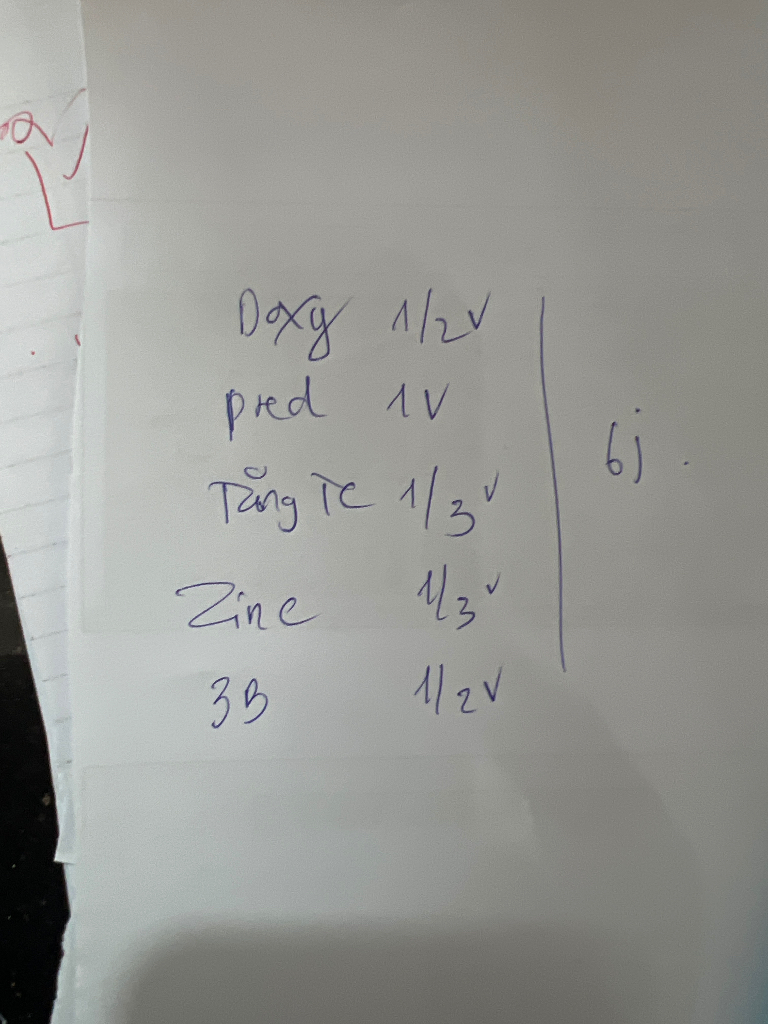 Doxy 1/2 v
pred 1 v
Tăng TC 1/3 v
Zinc 1/3 v
3B 1/2 v
6j.